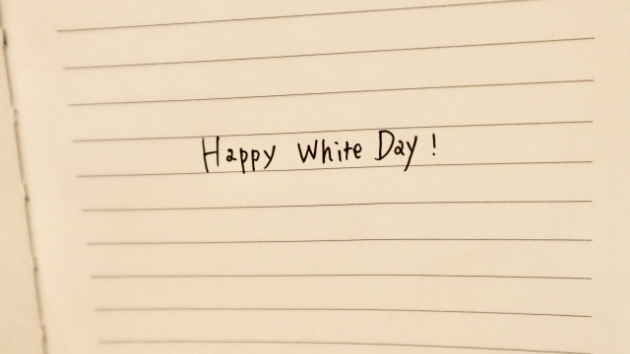 Happy White Day!